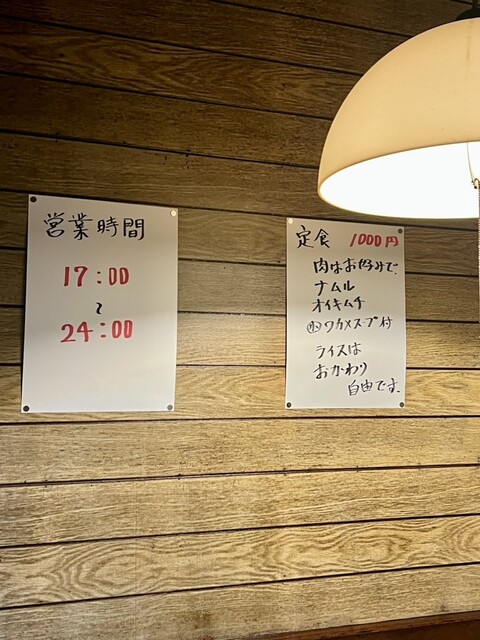 営業時間
17:00
〜
24:00
定食 1000円
肉はお好みで、
ナムル
オイキムチ
㊙ワカメスープ付
ライスは
おかわり
自由です。